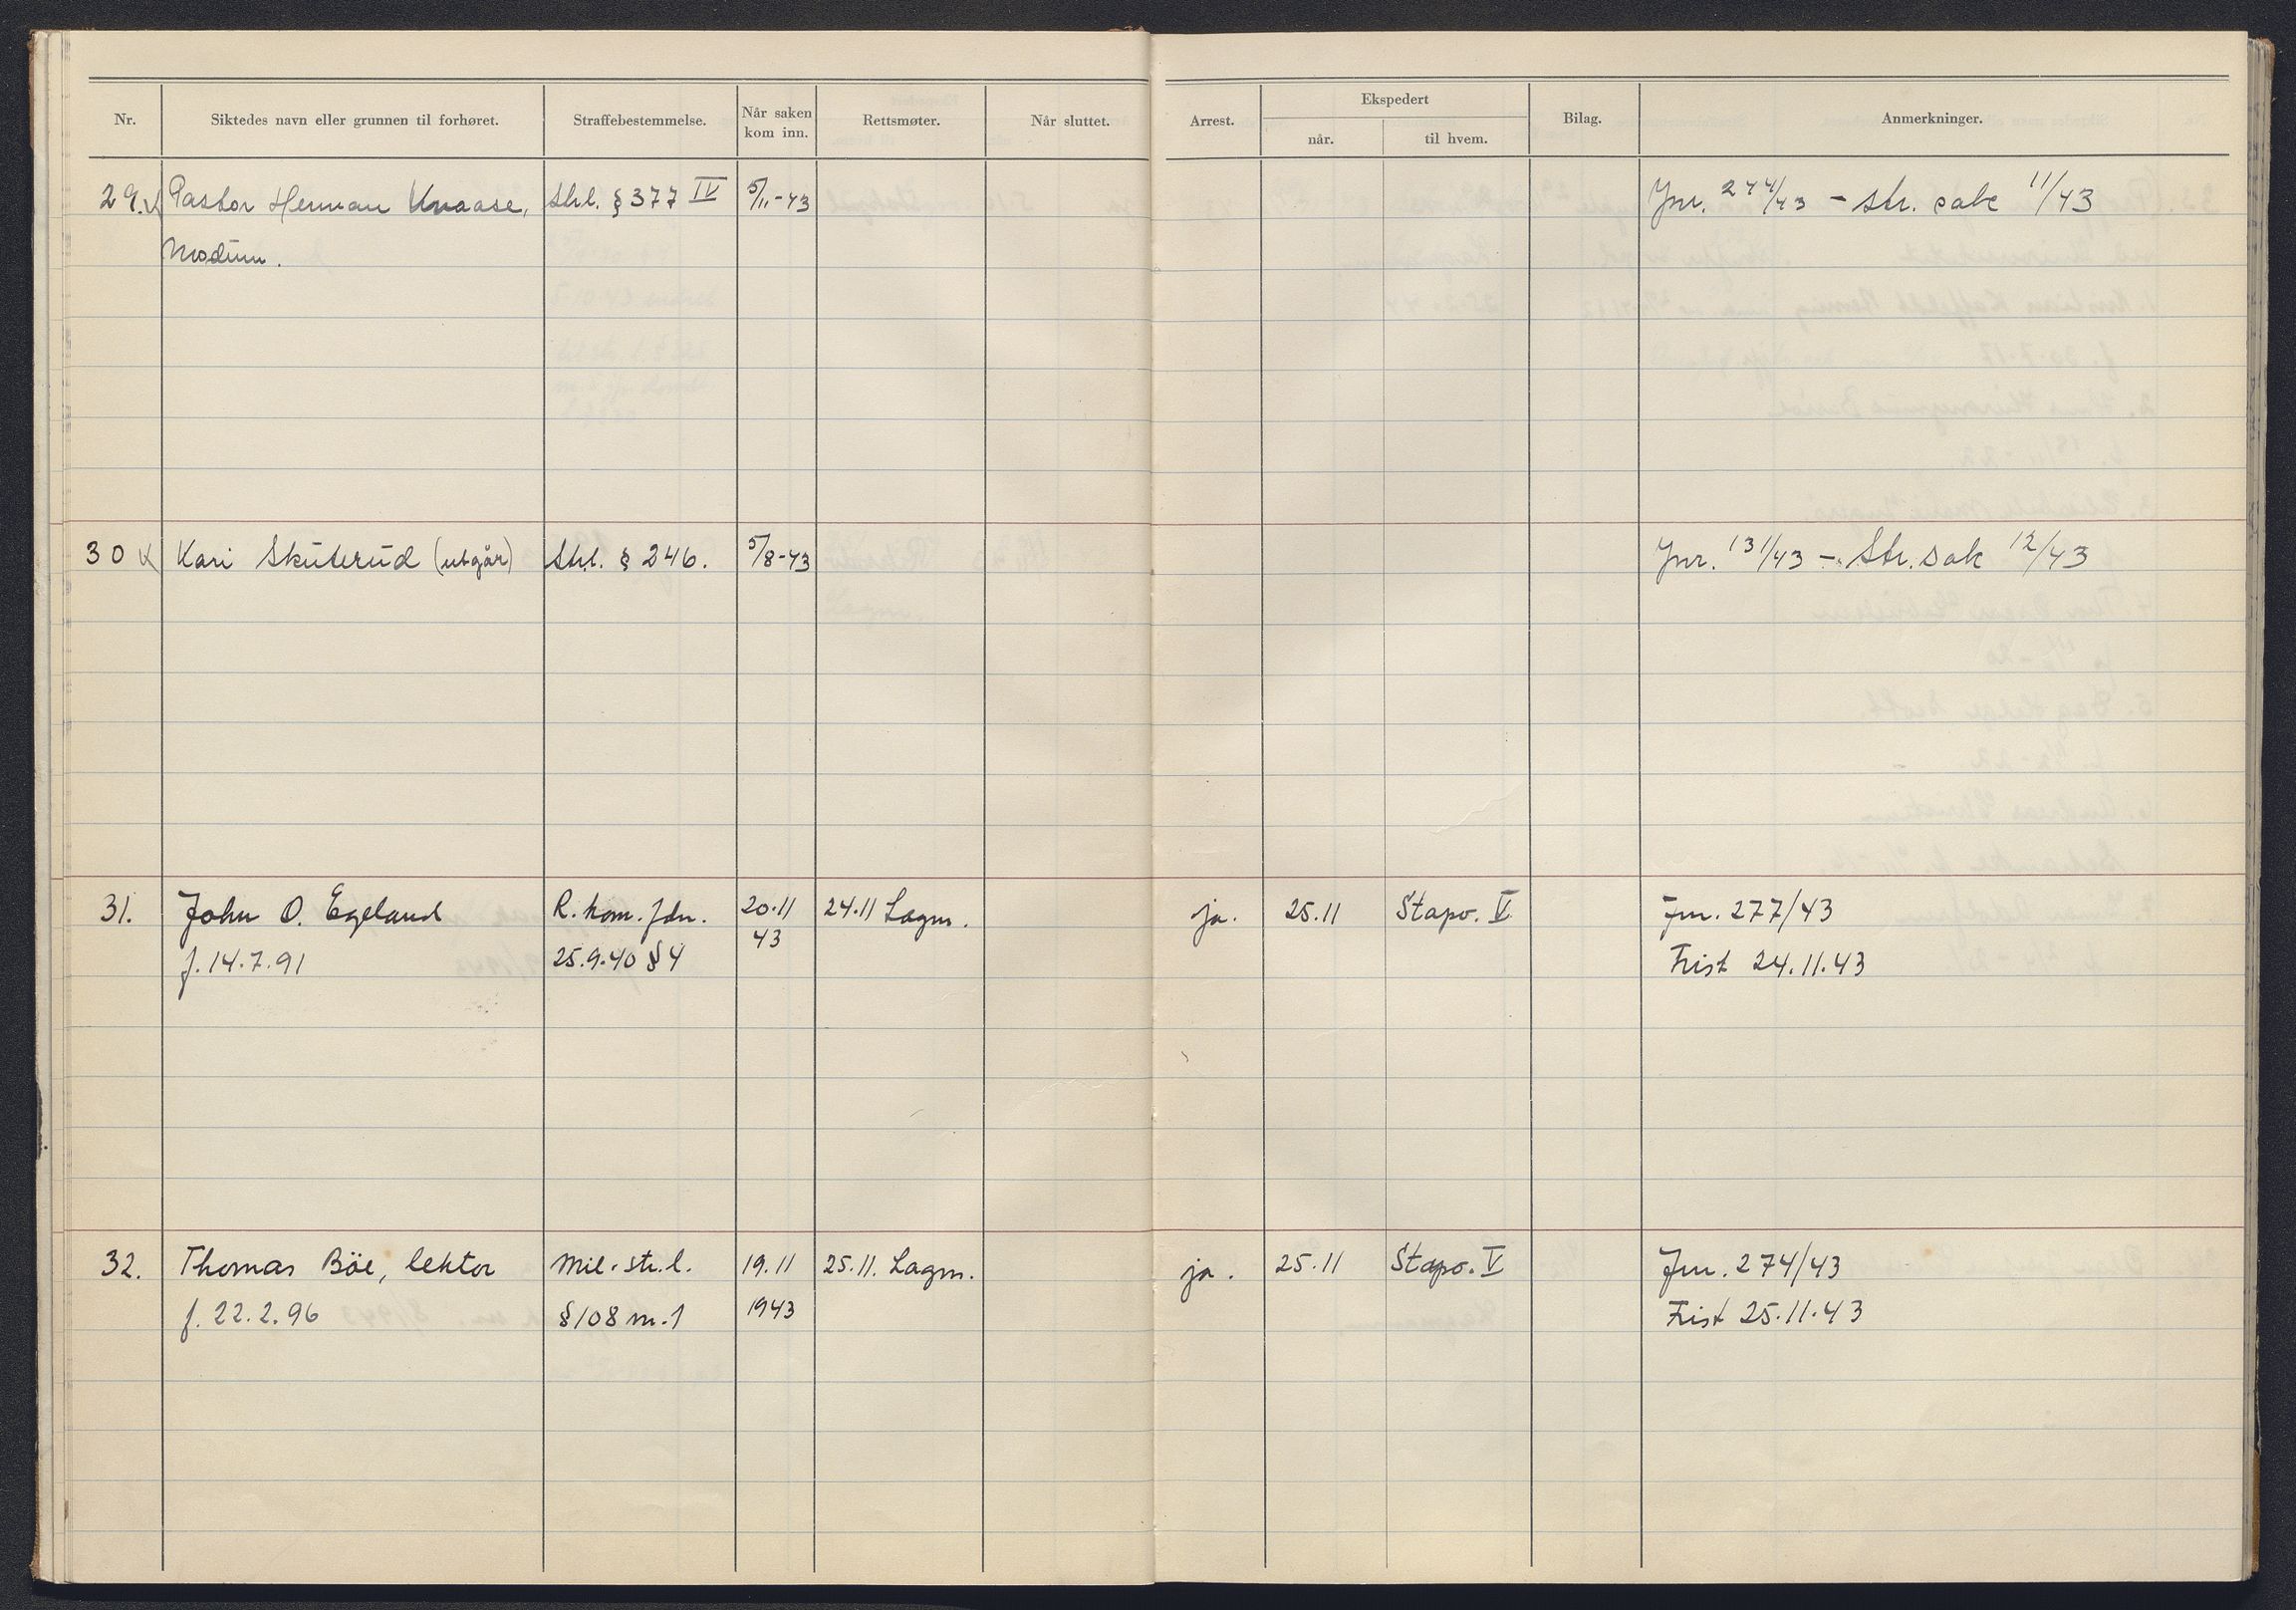 Nr. Siktedes navn eller grunnen til forhøret. Straffebestemmelse. Når saken kom inn. Rettsmøter. Når sluttet. Arrest. Ekspedert når. til hvem. Bilag. Anmerkninger.
29. Pastor Herman Knaase, Strl. § 377 IV 5/11-43 Jnr. 244/43 - str. sak 11/43
Modum.
30 K Kari Skuterud (utgår) Strl. § 246. 5/8-43 Jnr. 131/43 - Str. sak 12/43
31. John O. Egeland R. kom. fdn. 20.11 24.11 Lagm. ja. 25.11 Stapo. V Jnr. 277/43
f. 14.7.91 25.9.40 § 4 43 Frist 24.11.43
32. Thomas Böe, lektor Mil. str. l. 19.11 25.11. Lagm. ja. 25.11 Stapo. V Jnr. 274/43
f. 22.2.96 § 108 nr. 1 1943 Frist 25.11.43